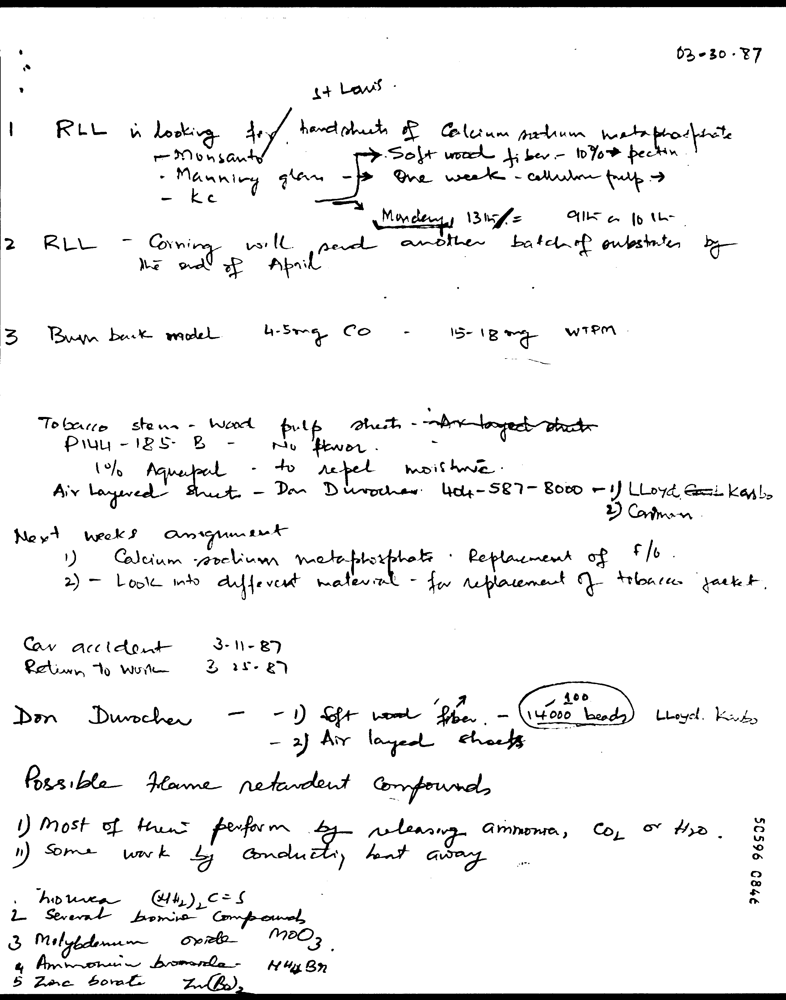 03-30-87
St Louis.
1 RLL is looking for handsheets of Calcium sodium metaphosphate
- Monsanto → Soft wood fiber - 10% → pectin
- Manning glass - → One week - cellulose pulp →
- KC
Monday, 13th = 9th or 10th
2 RLL - Corning will send another batch of substrates by
the end of April
3 Burn back model 4-5mg CO - 15-18 mg WTPM
Tobacco stem - Wood pulp sheets - Air layed sheets
P144-185-B - No flavor.
1% Aquapel - to repel moisture.
Air Layered Sheets - Don Durocher 404-587-8000 - 1) LLoyd Karsbo
2) Carmen
Next weeks assignment
1) Calcium sodium metaphosphate. Replacement of F/G.
2) - Look into different material - for replacement of tobacco jacket.
Car accident 3-11-87
Return to work 3 25-87
Don Durocher - - 1) Soft wood fiber. - 100 14000 beads LLoyd.
- 2) Air layed sheets
Possible flame retardent compounds
1) Most of them perform by releasing ammonia, CO2 or H2O.
11) Some work by conducting heat away
. Thiourea (NH2)2C=S
2 Several bomine compounds
3 Molybdenum oxide MoO3.
4 Ammonium bromide NH4Br
5 Zinc borate Zn(Bo)2
50596 0846